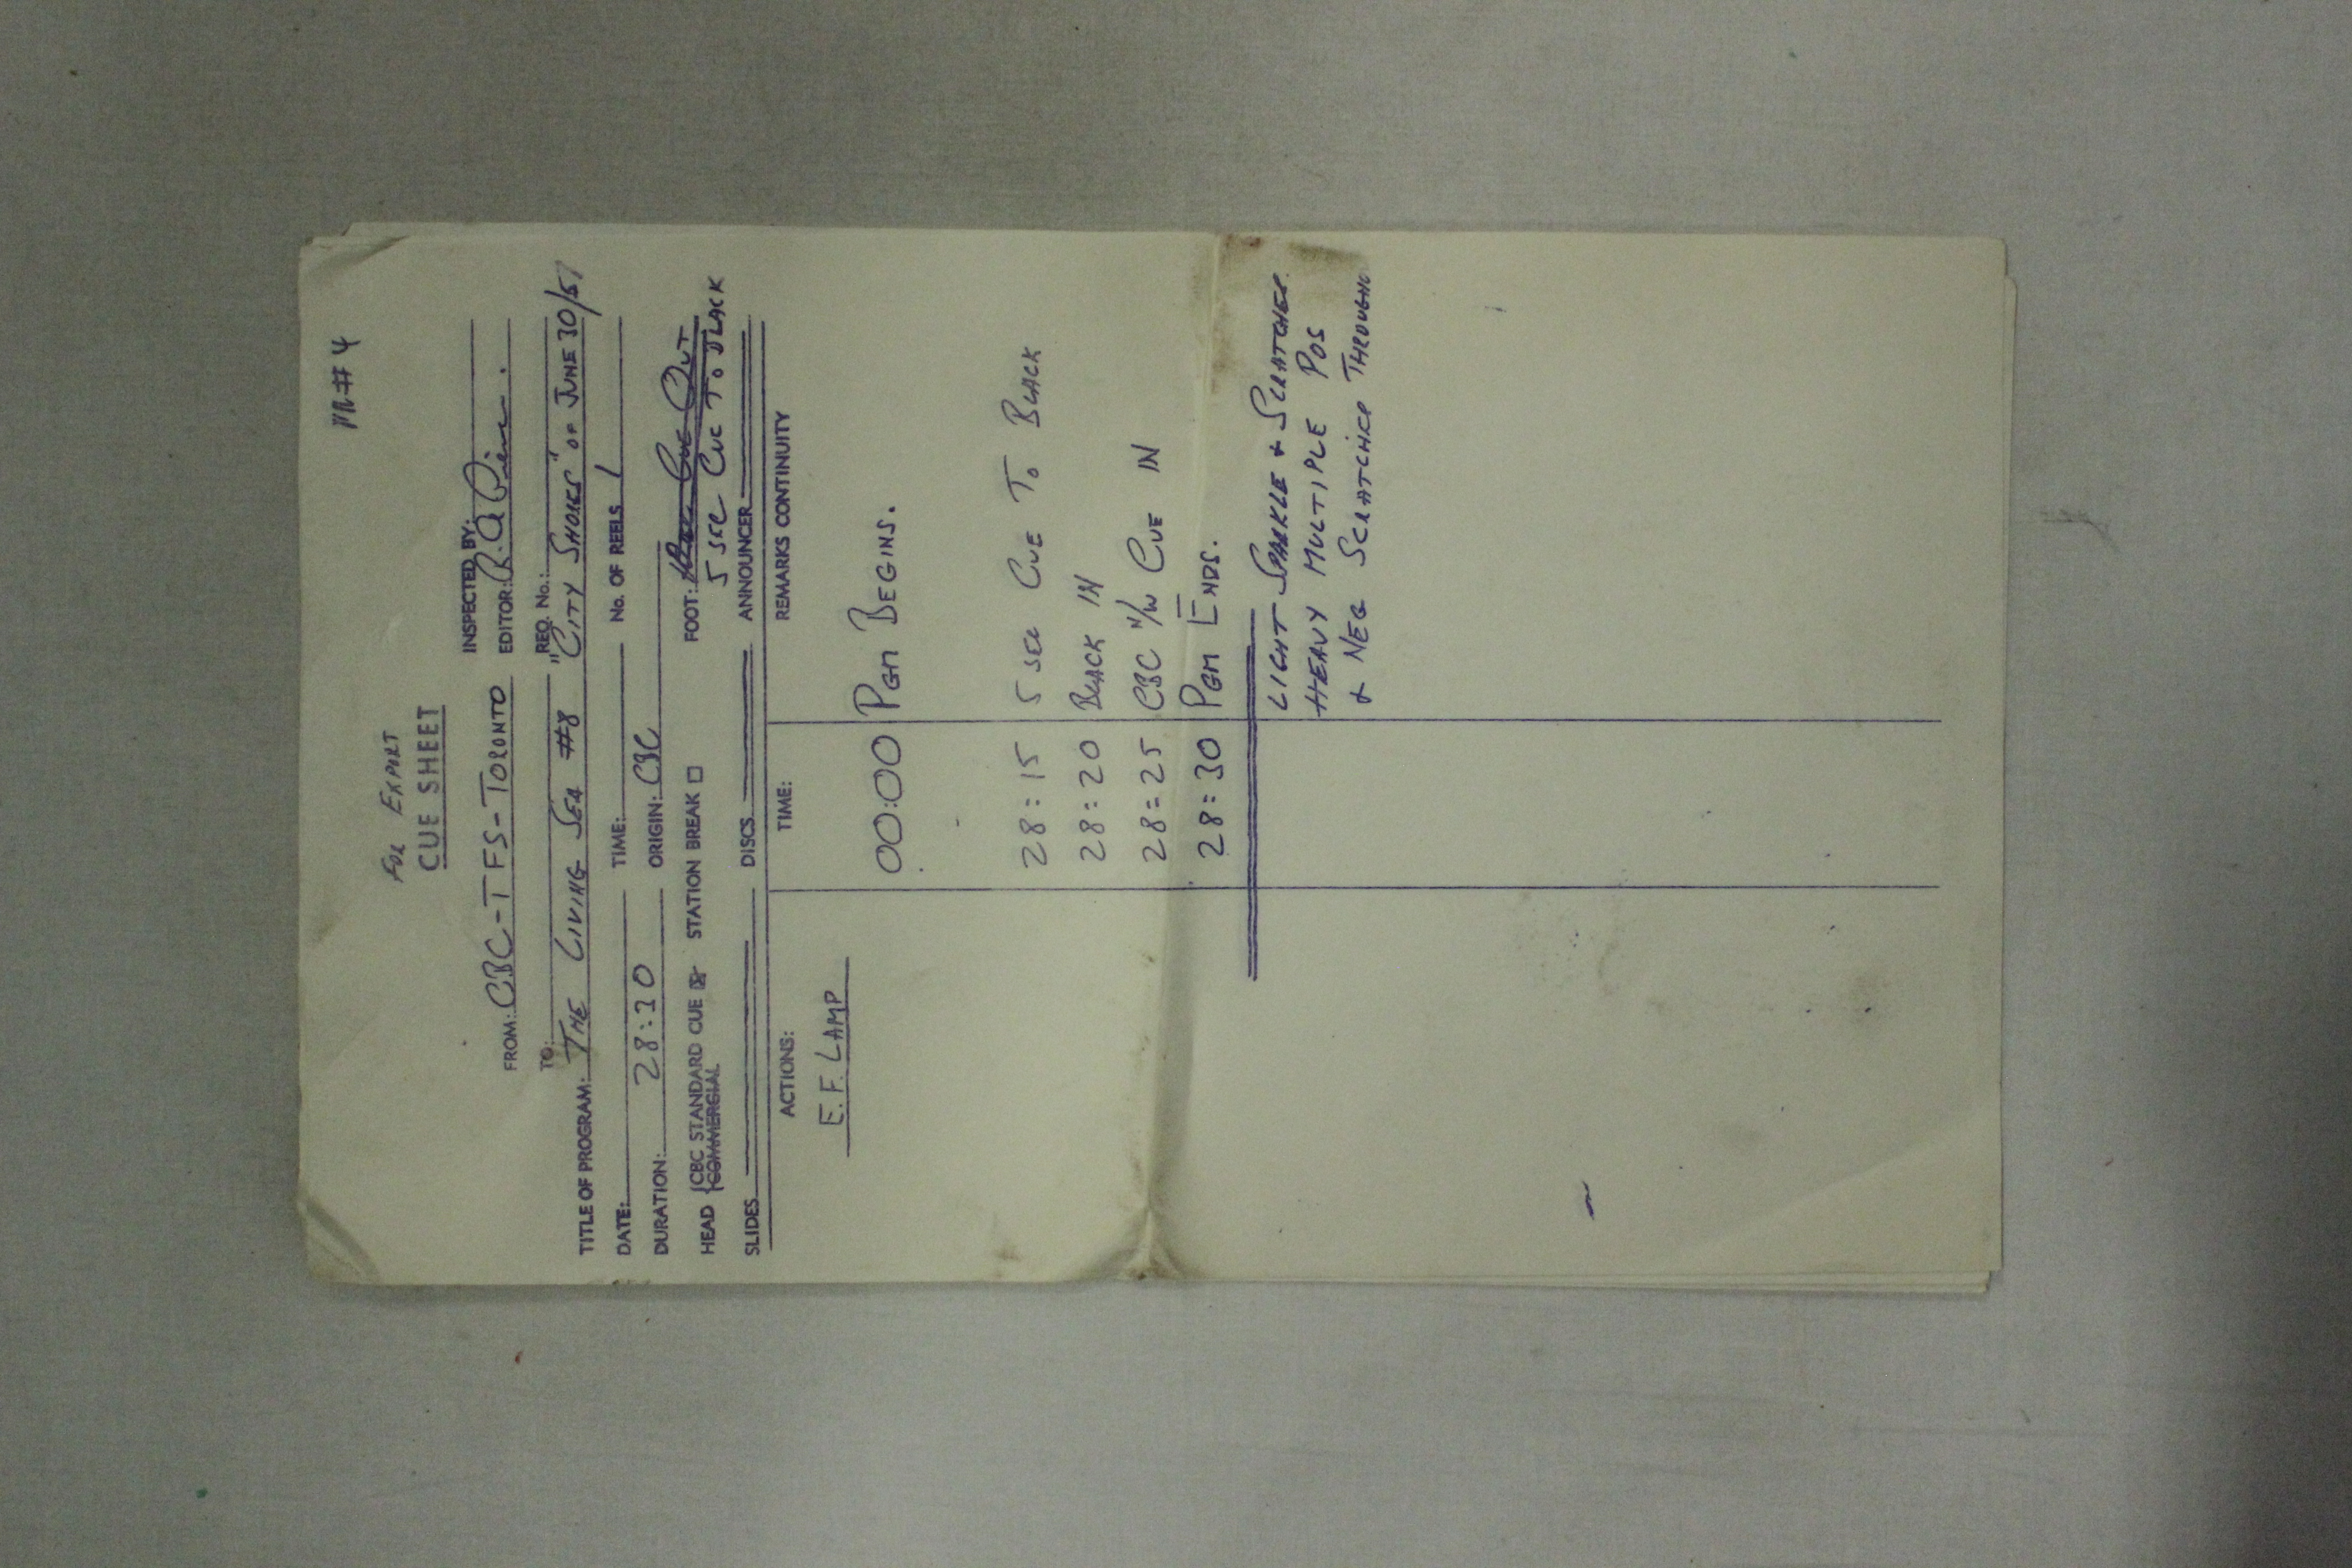 PR#4
FOR EXPORT
CUE SHEET
FROM: CBC-TFS-TORONTO INSPECTED BY:
EDITOR:
TO: REQ. No.:
TITLE OF PROGRAM: THE LIVING SEA #8 "CITY SHORES" OF JUNE 30/5
DATE: TIME: No. OF REELS 1
DURATION: 28:30 ORIGIN: CBC
HEAD {CBC STANDARD CUE STATION BREAK FOOT: CUE OUT
COMMERCIAL 5 SEC CUE TO BLACK
SLIDES DISCS ANNOUNCER
ACTIONS: TIME: REMARKS CONTINUITY
E.F. LAMP
00:00 PGM BEGINS.
28:15 5 SEC CUE TO BLACK
28:20 BLACK IN
28:25 CBC N/W CUE IN
28:30 PGM ENDS.
LIGHT SPARKLE & SCRATCHES
HEAVY MULTIPLE POS
& NEG SCRATCHES THROUGHO